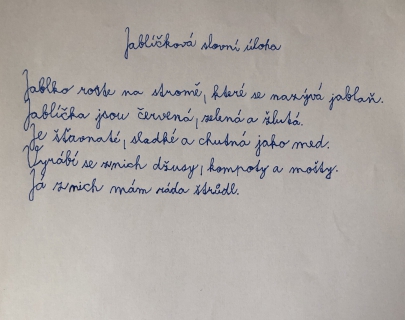 Jablíčková slovní úloha
Jablko roste na stromě, které se nazývá jabloň.
Jablíčka jsou červená, zelená a žlutá.
Je šťavnaté, sladké a chutná jako med.
Vyrábí se z nich džusy, kompoty a mošty.
Já z nich mám ráda štrůdl.